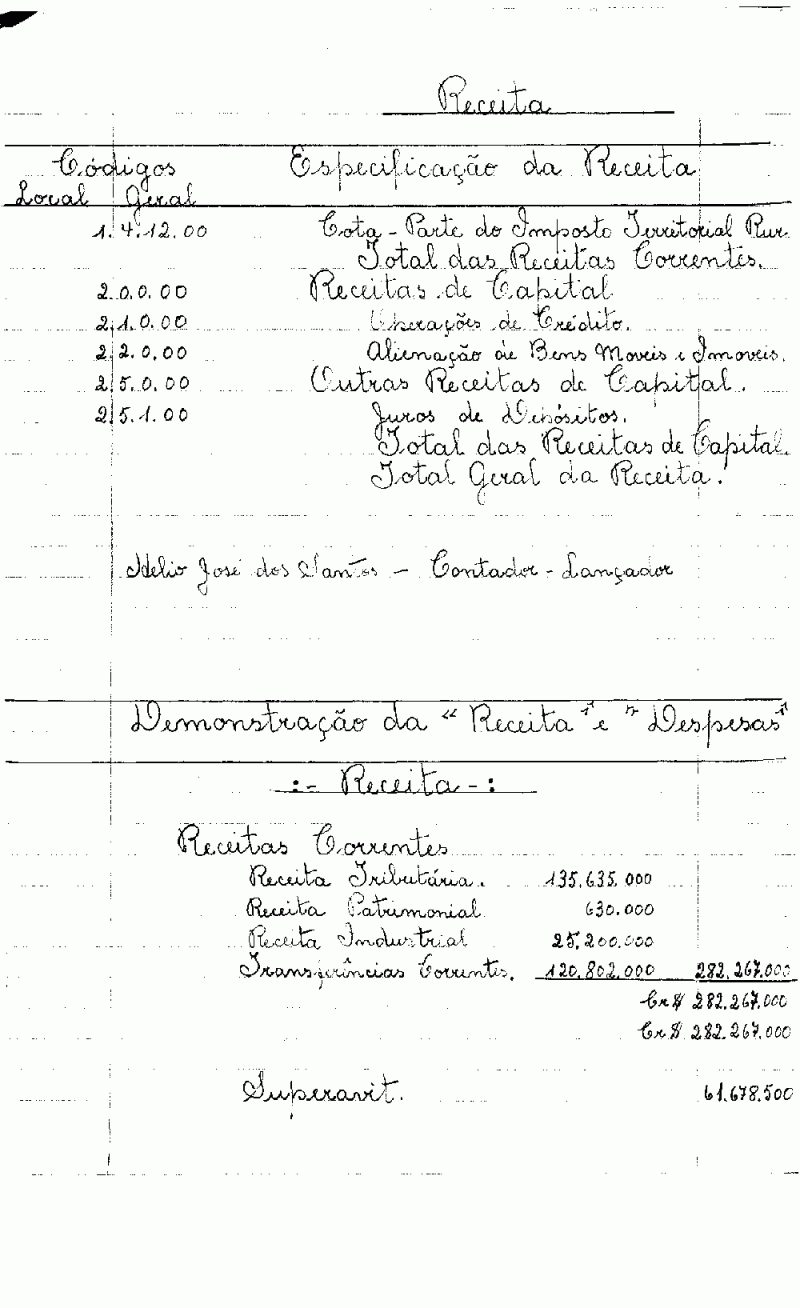 Receita
Códigos Especificação da Receita
Local Geral
1.4.12.00 Cota-Parte do Imposto Territorial Rur.
Total das Receitas Correntes.
2.0.0.00 Receitas de Capital
2.1.0.00 Operações de Crédito.
2.2.0.00 Alienação de Bens Moveis e Imoveis.
2.5.0.00 Outras Receitas de Capital.
2.5.1.00 Juros de Depósitos.
Total das Receitas de Capital.
Total Geral da Receita.
Helio José dos Santos - Contador-Lançador
Demonstração da "Receita" e "Despesas"
:- Receita -:
Receitas Correntes
Receita Tributária. 135.635.000
Receita Patrimonial 630.000
Receita Industrial 25.200.000
Transferências Correntes. 120.802.000 282.267.000
Cr$ 282.267.000
Cr$ 282.267.000
Superavit. 61.678.500